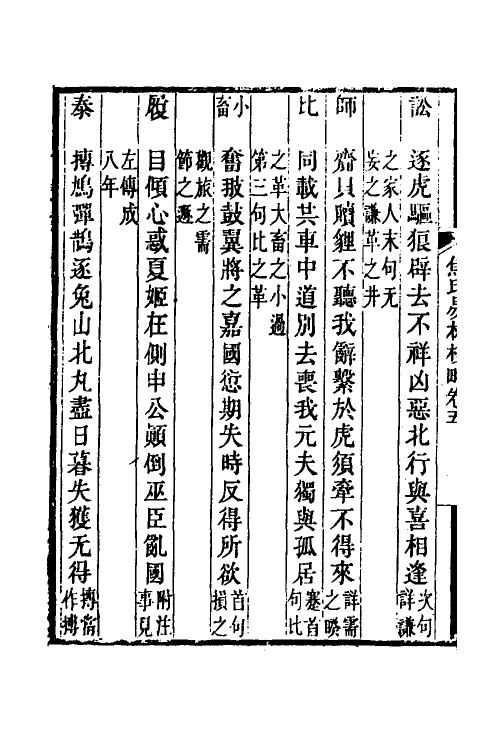 焦氏易林校略卷五
訟　逐虎驅狼辟去不祥凶惡北行與喜相逢次句詳謙
之家人末句无
妄之謙革之井
師　齋貝贖貍不聽我辭繫於虎須牽不得來詳需之睽
比　同載共車中道別去喪我元夫獨與孤居蹇首句比
之革大畜之小過
第三句比之革
小畜　奮翅鼓翼將之嘉國愆期失時反得所欲首句損之
觀旅之需
節之遯
履　目傾心惑夏姬在側申公顚倒巫臣亂國附注事見
左傳成
八年
泰　摶鳩彈鵲逐兔山北丸盡日暮失獲无得摶當作搏